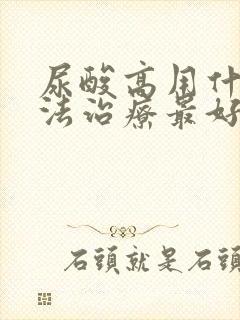 尿酸高用什
法治療最好
石頭就是石頭